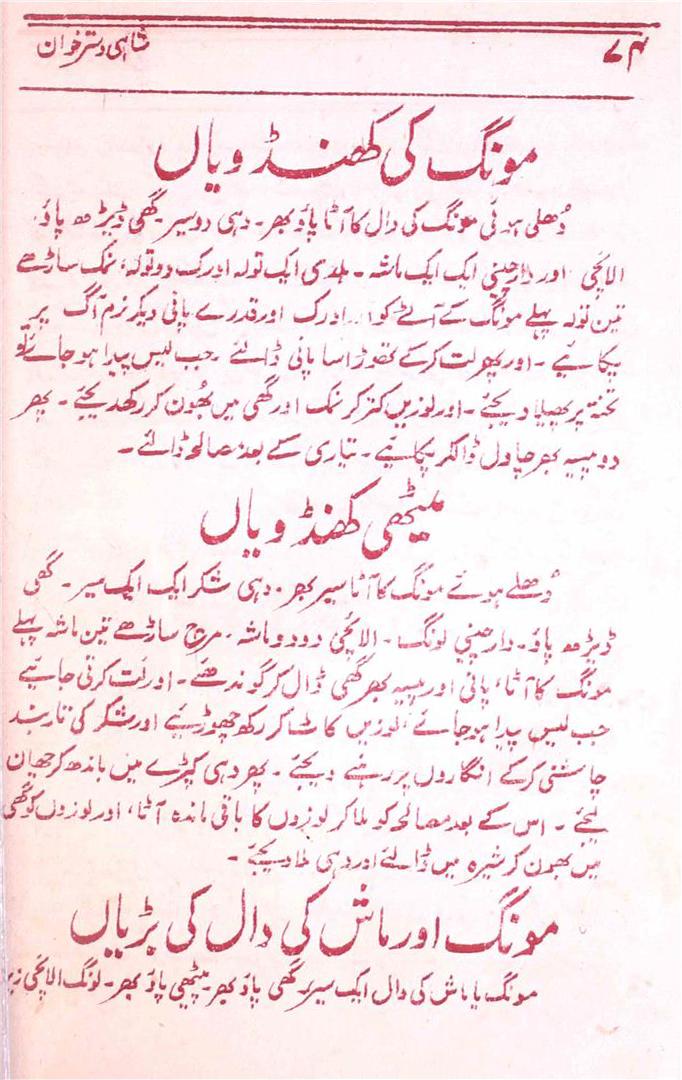 ۷۴ شاہی دسترخوان
مونگ کی کھنڈویاں
دُھلی ہوئی مونگ کی دال کا آٹا پاؤ بھر۔ دہی دو سیر۔ گھی ڈیڑھ پاؤ۔
الائچی اور دارچینی ایک ایک ماشہ۔ ہلدی ایک تولہ ادرک دو تولہ، نمک ساڑھے
تین تولہ پہلے مونگ کے آٹے کو ادرک اور قدرے پانی دیکر نرم آگ پر
پکائیے۔ اور پھر لت کر کے تھوڑا سا پانی ڈالئے۔ جب لیس پیدا ہو جائے تو
تختہ پر پھیلا دیجئے۔ اور لوزیں کتر کر نمک اور گھی میں بھُون کر رکھدیجئے۔ پھر
دو پیسہ بھر چاول ڈالکر پکائیے۔ تیاری کے بعد مصالحہ ڈالئے۔
میٹھی کھنڈویاں
دُھلے ہوئے مونگ کا آٹا سیر بھر۔ دہی شکر ایک ایک سیر۔ گھی
ڈیڑھ پاؤ۔ دارچینی لونگ۔ الائچی دو دو ماشہ۔ مرچ ساڑھے تین ماشہ پہلے
مونگ کا آٹا، پانی اور پیسہ بھر گھی ڈال کر گوندھئے۔ اور لَت کرتی جائیے
جب لیس پیدا ہو جائے، لوزیں کاٹ کر رکھ چھوڑئیے اور شکر کی تار بند
چاشنی کر کے انگاروں پر رہنے دیجئے۔ پھر دہی کپڑے میں باندھ کر چھان
لیجئے۔ اس کے بعد مصالحہ کو ملا کر لوزوں کا باقی ماندہ آٹا، اور لوزوں کو گھی
میں بھون کر شیرہ میں ڈالئے اور دہی ملا دیجئے۔
مونگ اور ماش کی دال کی بڑیاں
مونگ یا ماش کی دال ایک سیر گھی پاؤ بھر۔ پیٹھی پاؤ بھر۔ لونگ الائچی